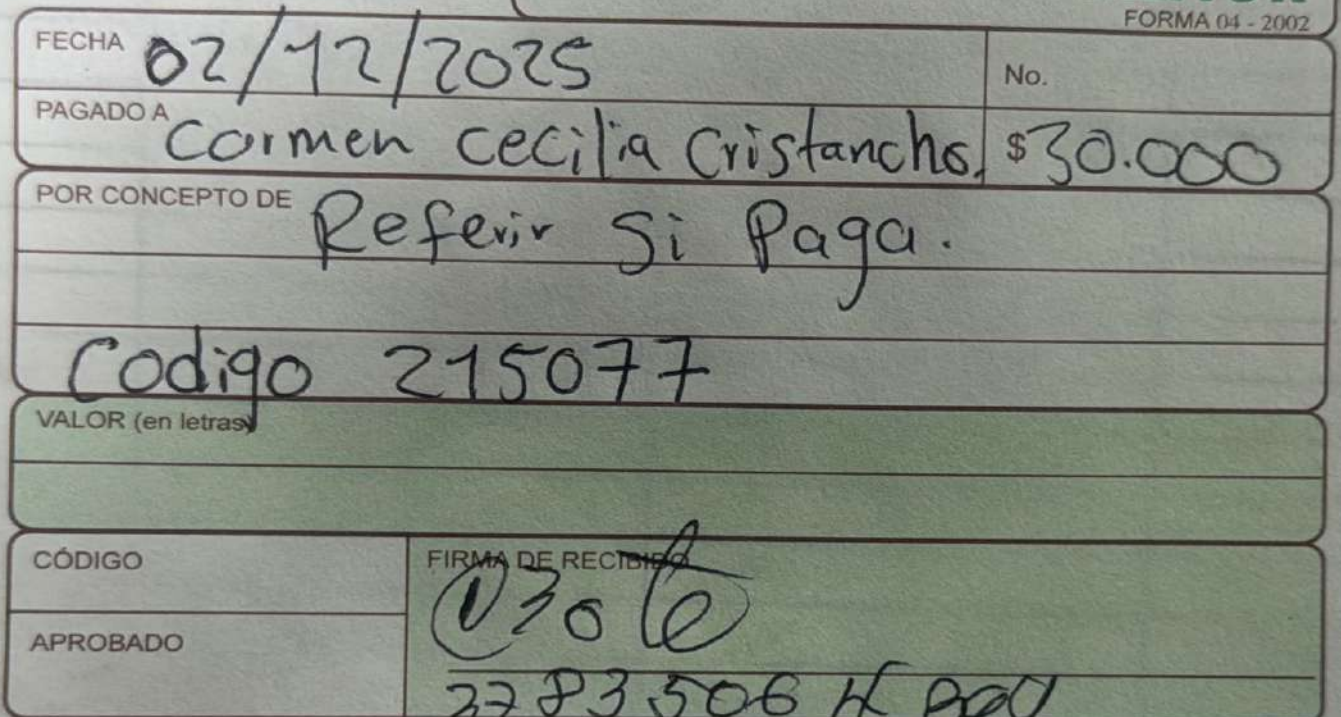 FORMA 04 - 2002
FECHA 02/12/2025
No.
PAGADO A Carmen Cecilia Cristancho. $30.000
POR CONCEPTO DE Referir Si Paga.
Codigo 215077
VALOR (en letras)
CÓDIGO
FIRMA DE RECIBIDO
APROBADO